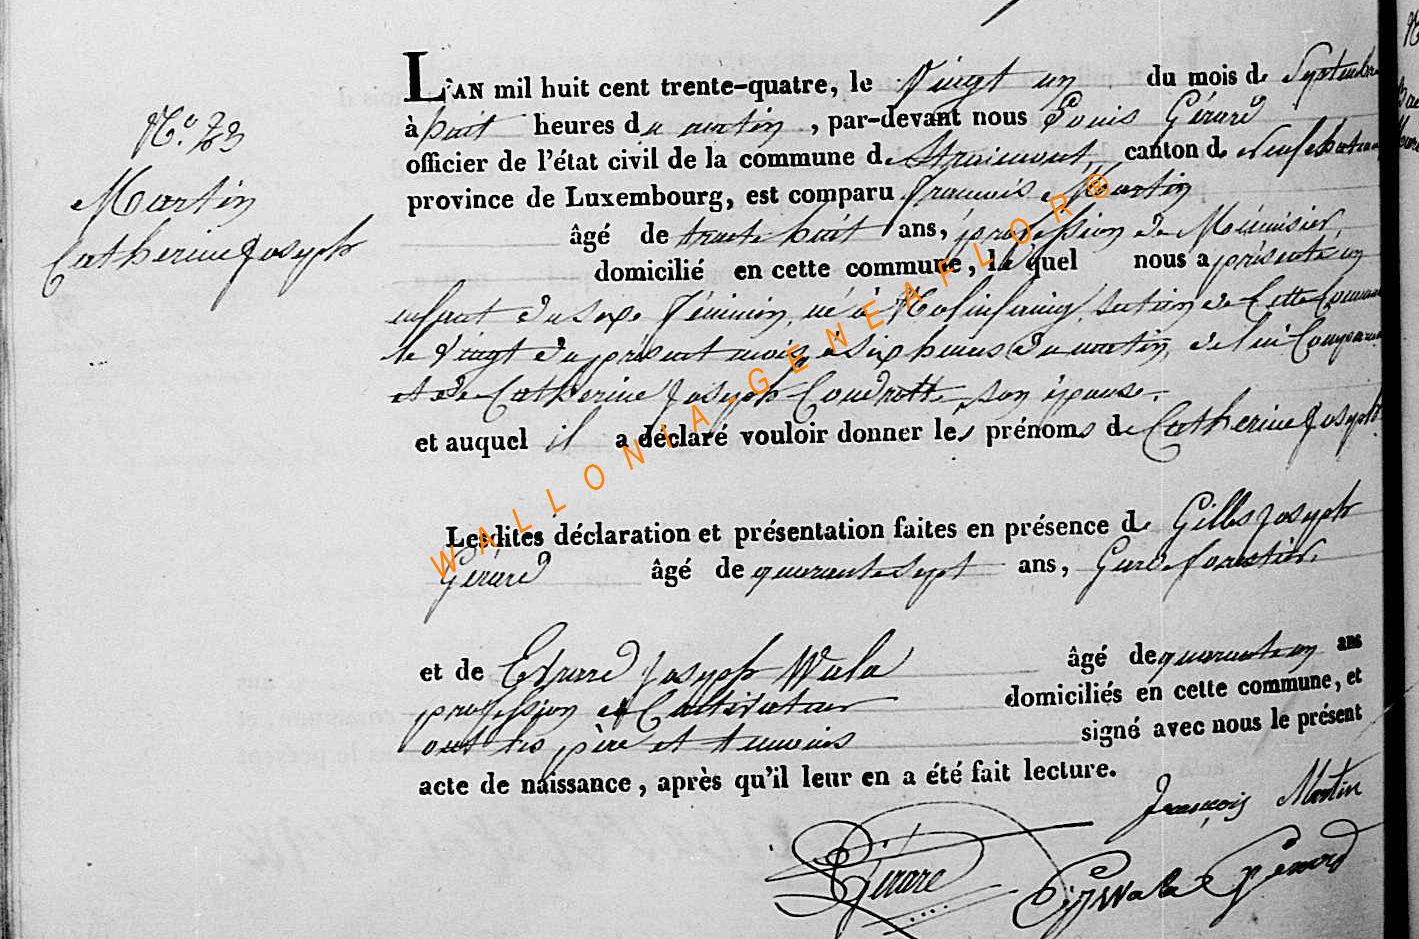 N.° 23
Martin
Catherine Joseph
L'AN mil huit cent trente-quatre, le Vingt un du mois de Septembre
à huit heures du matin, par-devant nous Louis Gérard
officier de l'état civil de la commune de Straimont, canton de Neufchateau
province de Luxembourg, est comparu François Martin
âgé de trente huit ans, profession de Menuisier,
domicilié en cette commune, lequel nous a présenté un
enfant du sexe féminin, né à Molinfaing, section de Cette Commune
le Vingt du présent mois, à six heures du matin, de lui Comparant
et de Catherine Joseph son épouse.
et auquel il a déclaré vouloir donner les prénoms de Catherine Joseph
Lesdites déclaration et présentation faites en présence de Gilles Joseph
Gérard âgé de quarante sept ans, Garde forestier,
et de Joseph Wala âgé de quarante un ans
profession Cultivateur domiciliés en cette commune, et
ont les père et temoins signé avec nous le présent
acte de naissance, après qu'il leur en a été fait lecture.
François Martin
Gérard
Wala Gérard
WALLONIA-GENEAFLORE®